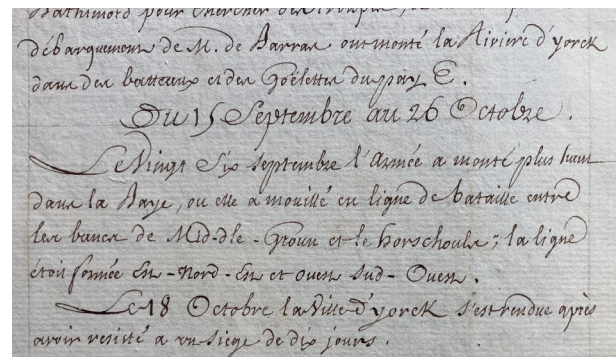 Bathimord pour chercher des troupes,
débarquement de M. de Barras ont monté la Riviere d'yorck
dans des batteaux et des Goëlettes du pay E.
Du 15 Septembre au 26 Octobre.
Le Vingt Six septembre l'Armée a monté plus haut
dans la Baye, ou elle a mouillé en ligne de bataille entre
les bancs de Mid-dle-Groun et le horschouls; la ligne
étoit formée Est-Nord-Est et ouest Sud-Ouest.
Le 18 Octobre la Ville d'yorck s'est rendue après
avoir resisté a un siege de dix jours.